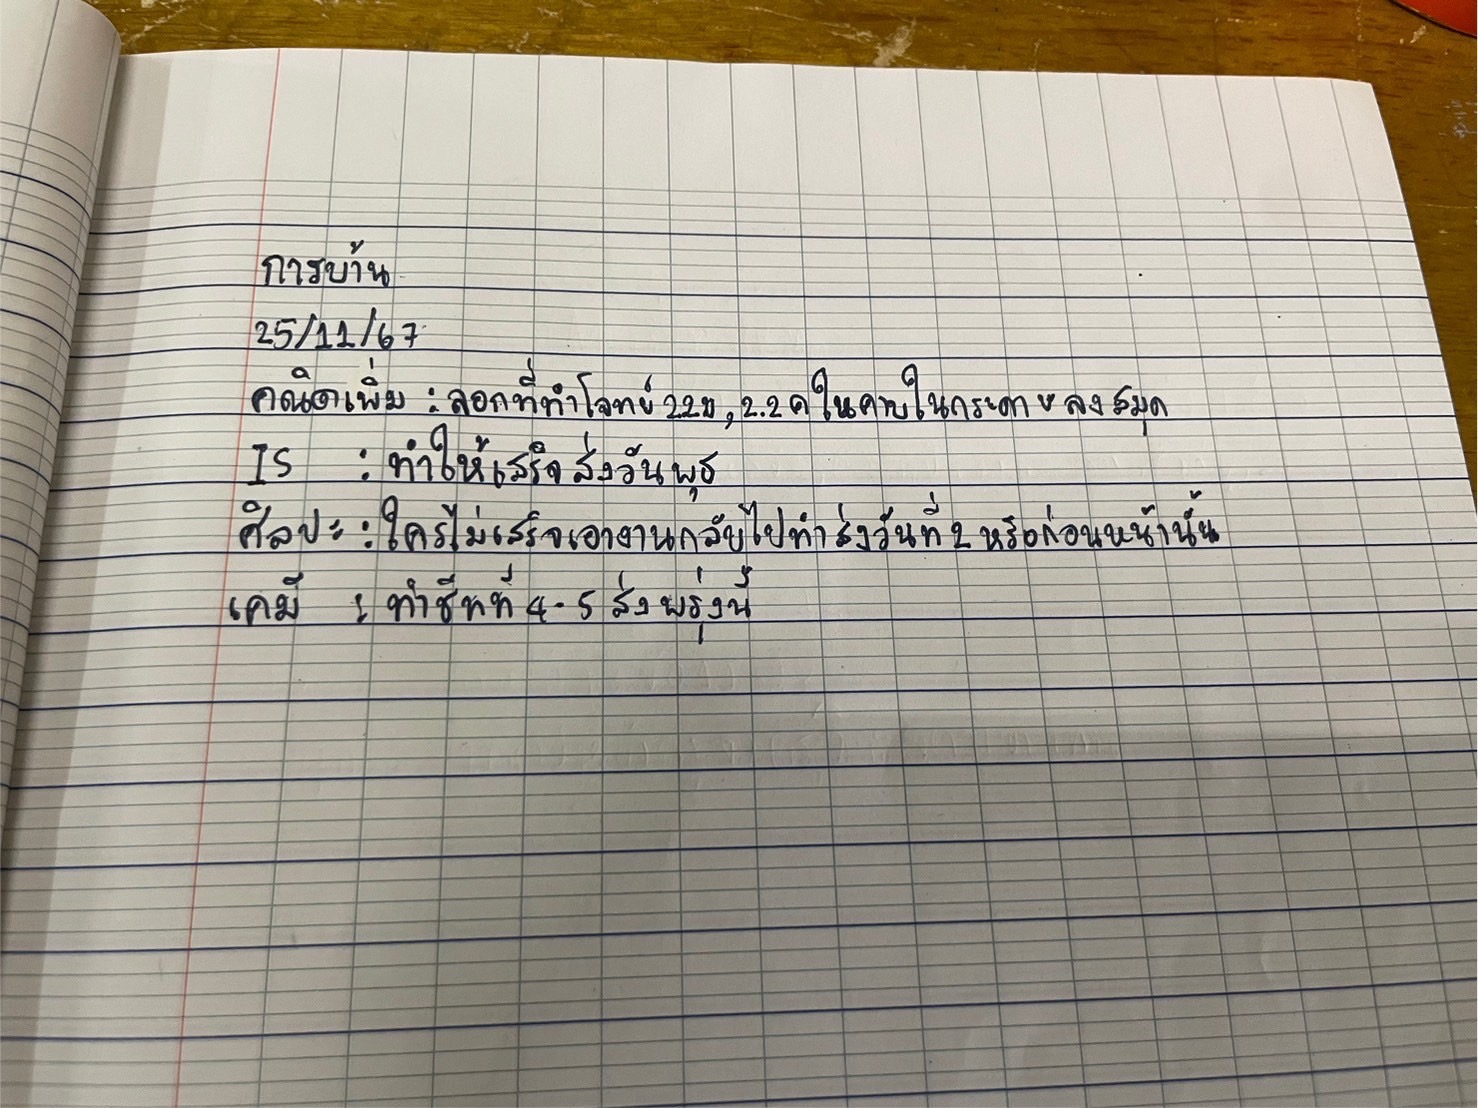 การบ้าน
25/11/67
คณิตเพิ่ม : ลอกที่ทำโจทย์ 2.2ข, 2.2 ค ในคาบในกระดาษ ลงสมุด
IS : ทำให้เสร็จ ส่งวันพุธ
ศิลปะ : ใครไม่เสร็จเอางานกลับไปทำ ส่งวันที่ 2 หรือก่อนหน้านั้น
เคมี : ทำชีทที่ 4-5 ส่งพรุ่งนี้